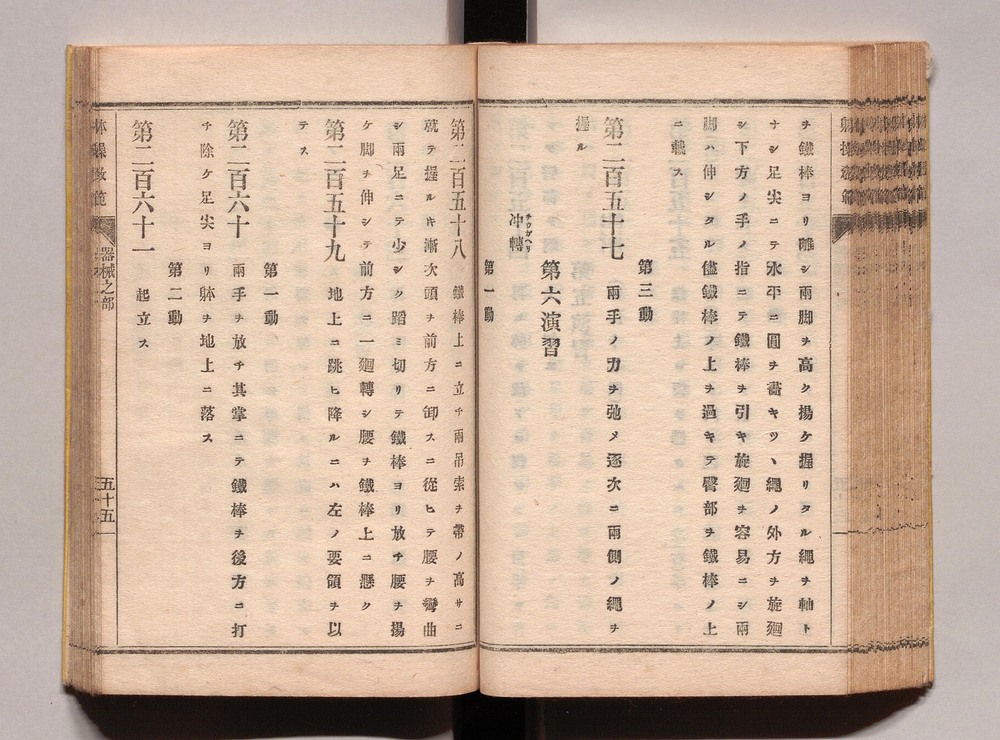 ヲ鐵棒ヨリ離シ兩脚ヲ高ク揚ケ握リタル繩ヲ軸ト
ナシ足尖ニテ水平ニ圓ヲ畵キツヽ繩ノ外方ヲ旋廻
シ下方ノ手ノ指ニテ鐵棒ヲ引キ旋廻ヲ容易ニシ兩
脚ハ伸シタル儘鐵棒ノ上ヲ過キテ臀部ヲ鐵棒ノ上
ニ載ス
第三動
第二百五十七 兩手ノ力ヲ弛メ逐次ニ兩側ノ繩ヲ
握ル
第六演習
冲轉
チウガヘリ
第一動
第二百五十八 鐵棒上ニ立チ兩吊索ヲ帶ノ高サニ
就テ握ルキ漸次頭ヲ前方ニ卸スニ從ヒテ腰ヲ彎曲
シ兩足ニテ少シク蹈ミ切リテ鐵棒ヨリ放チ腰ヲ揚
ケ脚ヲ伸シテ前方ニ一廻轉シ腰ヲ鐵棒上ニ懸ク
第二百五十九 地上ニ跳ヒ降ルニハ左ノ要領ヲ以
テス
第一動
第二百六十 兩手ヲ放チ其掌ニテ鐵棒ヲ後方ニ打
チ除ケ足尖ヨリ躰ヲ地上ニ落ス
第二動
第二百六十一 起立ス
体操教範 器械之部 五十五